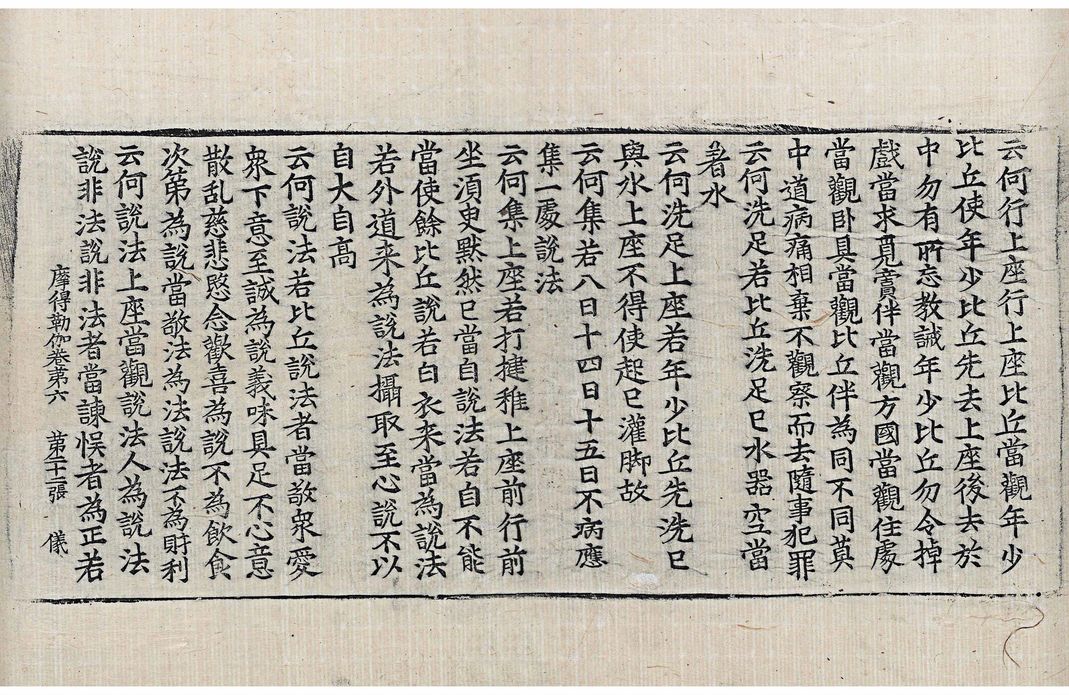 云何行上座行上座比丘當觀年少
比丘使年少比丘先去上座後去於
中勿有所忘教誡年少比丘勿令掉
戲當求覓賣伴當觀方國當觀住處
當觀卧具當觀比丘伴為同不同莫
中道病痛相棄不觀察而去隨事犯罪
云何洗足若比丘洗足已水器空當
著水
云何洗足上座若年少比丘先洗已
與水上座不得使起已灌脚故
云何集若八日十四日十五日不病應
集一處說法
云何集上座若打揵稚上座前行前
坐須臾黙然已當自說法若自不能
當使餘比丘說若白衣来當為說法
若外道来為說法攝取至心說不以
自大自高
云何說法若比丘說法者當敬衆愛
衆下意至誠為說義味具足不心意
散乱慈悲愍念歡喜為說不為飲食
次第為說當敬法為法說法不為財利
云何說法上座當觀說法人為說法
說非法說非法者當諫悮者為正若
摩得勒伽卷第六 第十二張 儀